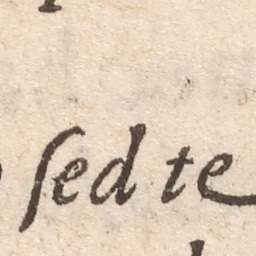 ſed te